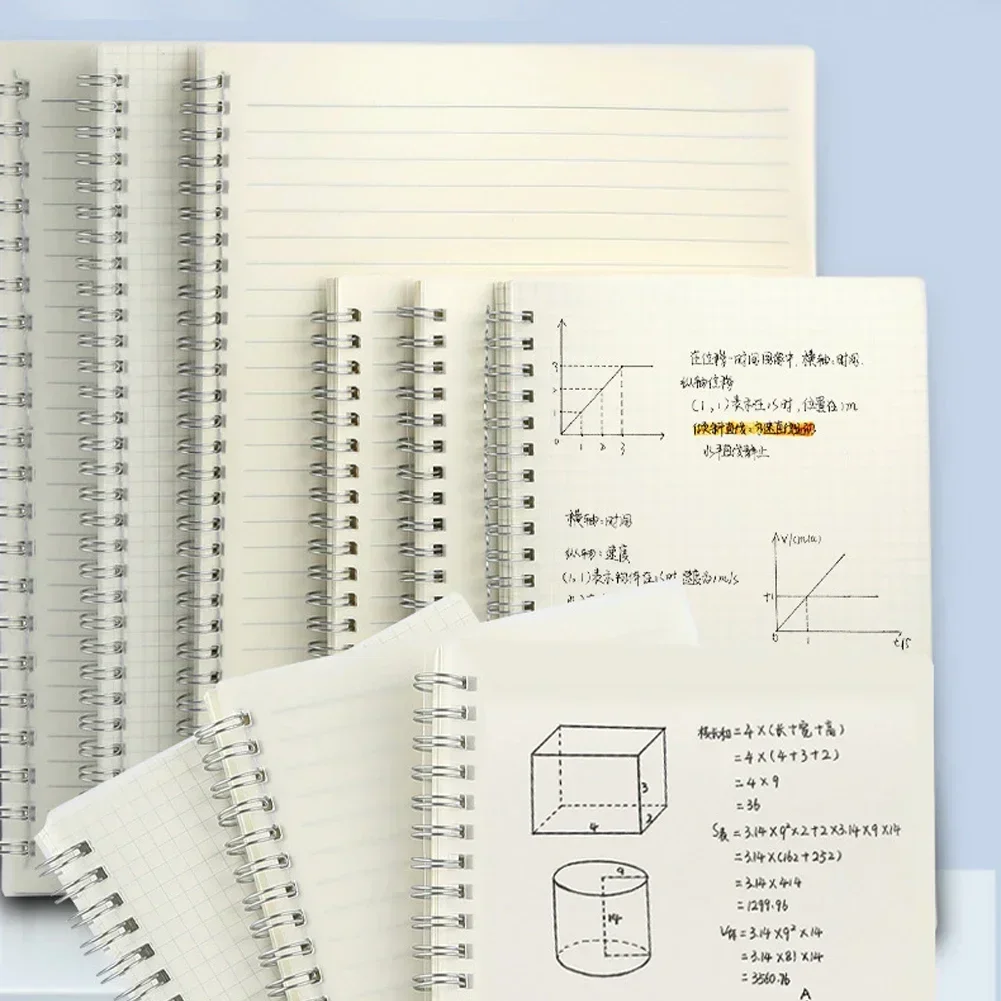 3
2
1
0
1 2 3
在位移-时间图像中, 横轴:时间.
纵轴位移
(1,1)表示在1s时,位置在1m
水平直线静止
横轴:时间
纵轴:速度
(1,1)表示物体在1s时速度为1m/s
V/(m/s)
+1
0 1 t/s
3
2
4
棱长和=4×(长+宽+高)
=4×(4+3+2)
=4×9
=36
9
14
S表=3.14×9²×2+2×3.14×9×14
=3.14×(162+252)
=3.14×414
=1299.96
V体=3.14×9²×14
=3.14×81×14
=3560.76
A